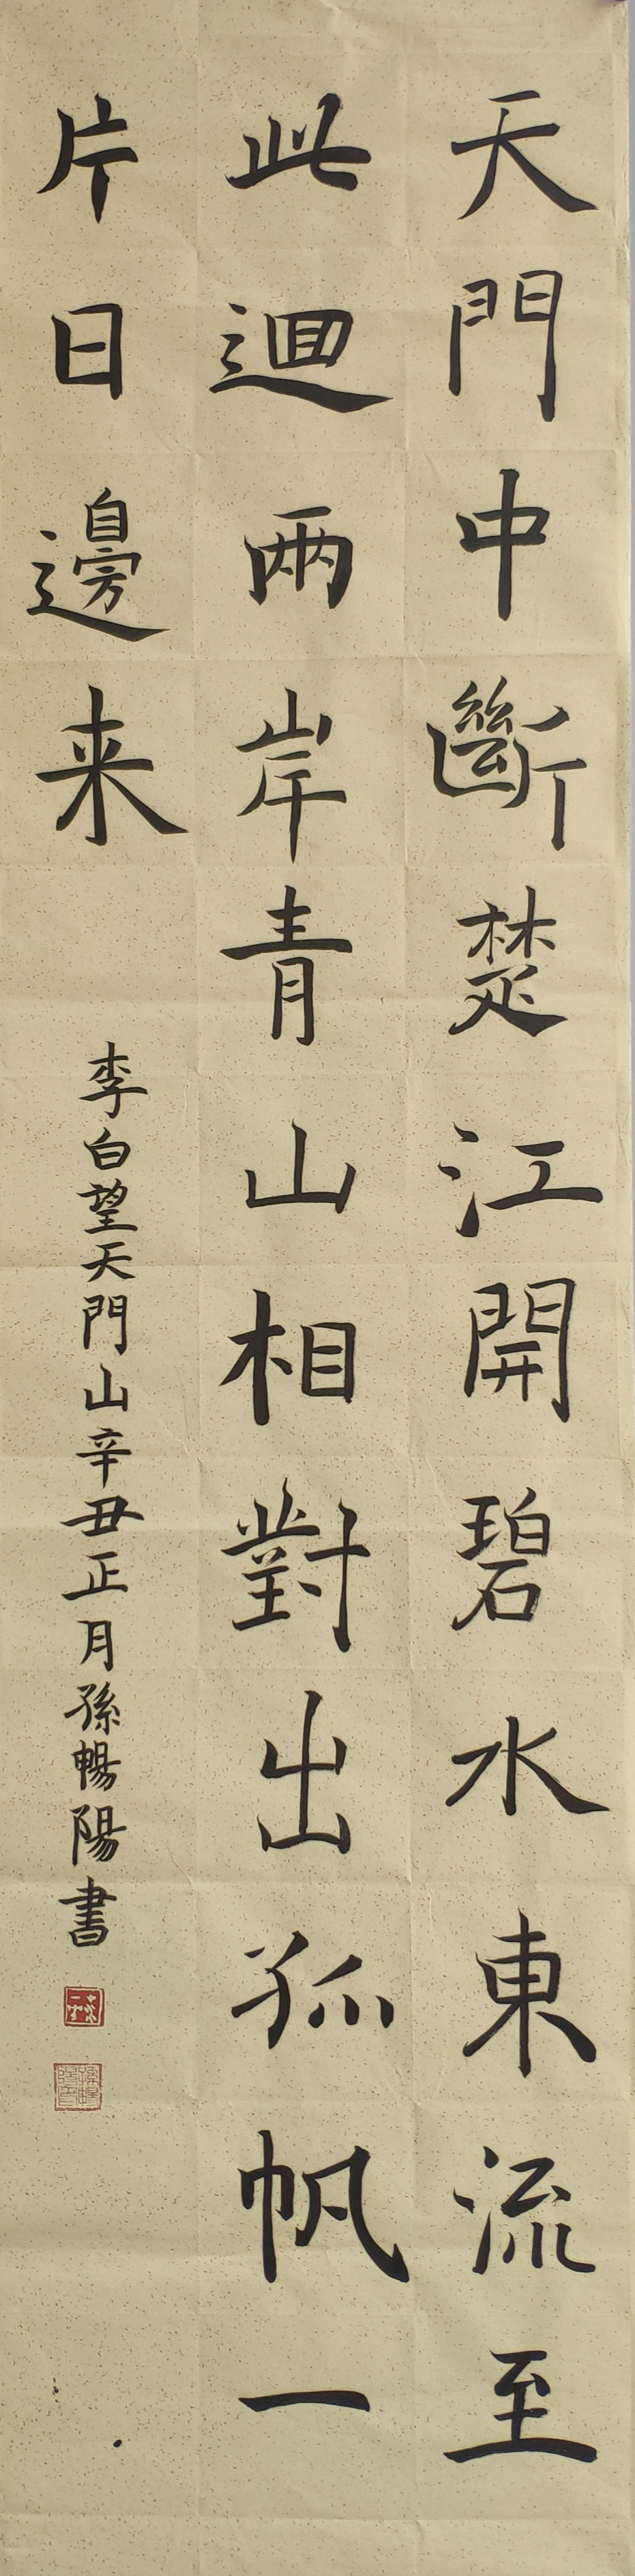 天門中斷楚江開碧水東流至
此迴兩岸青山相對出孤帆一
片日邊来
李白望天門山辛丑正月孫暢陽書